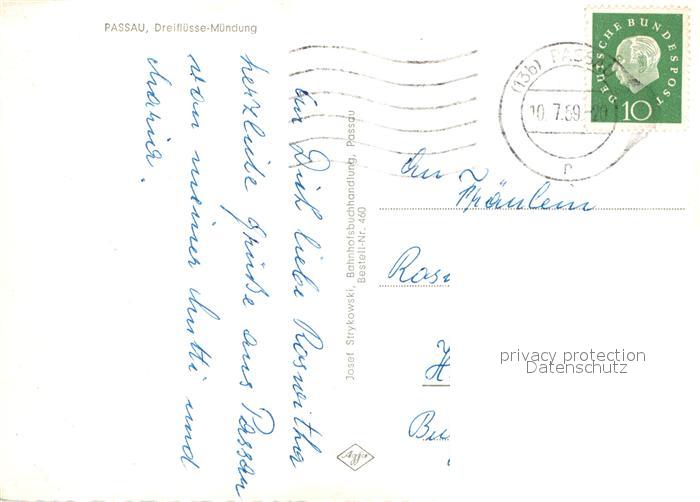 PASSAU, Dreiflüsse-Mündung
Für Dich liebe Roswitha
herzliche Grüße aus Passau
von meiner Mutti und
Maria.
Josef Strykowski, Bahnhofsbuchhandlung, Passau
Bestell-Nr. 460
Agfa
DEUTSCHE BUNDESPOST
10
(13b) PASSAU
10.7.59-20
An
Fräulein
Ros
H
Bu
privacy protection
Datenschutz